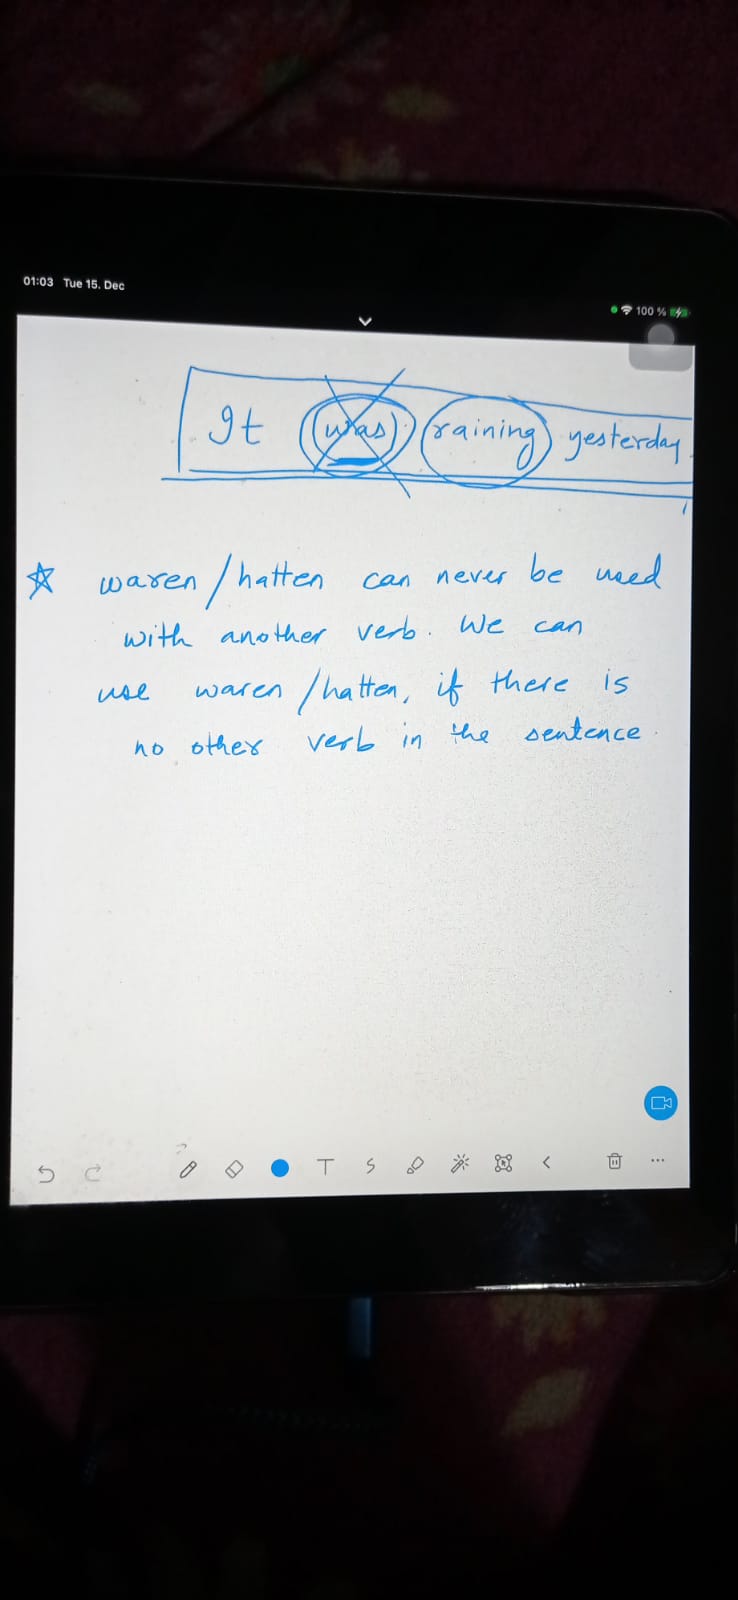 01:03 Tue 15. Dec
100 %
It (was) (raining) yesterday.
waren/hatten can never be used
with another verb. We can
use waren/hatten, if there is
no other verb in the sentence.
T S